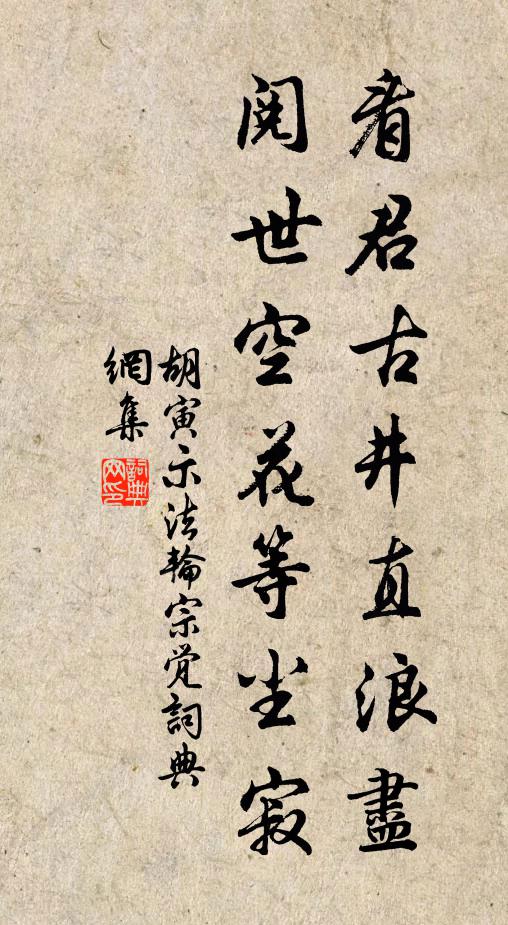 看君古井直浪盡
閱世空花等尘寂
胡寅示法輪宗觉詞典
網集
詞典
网印